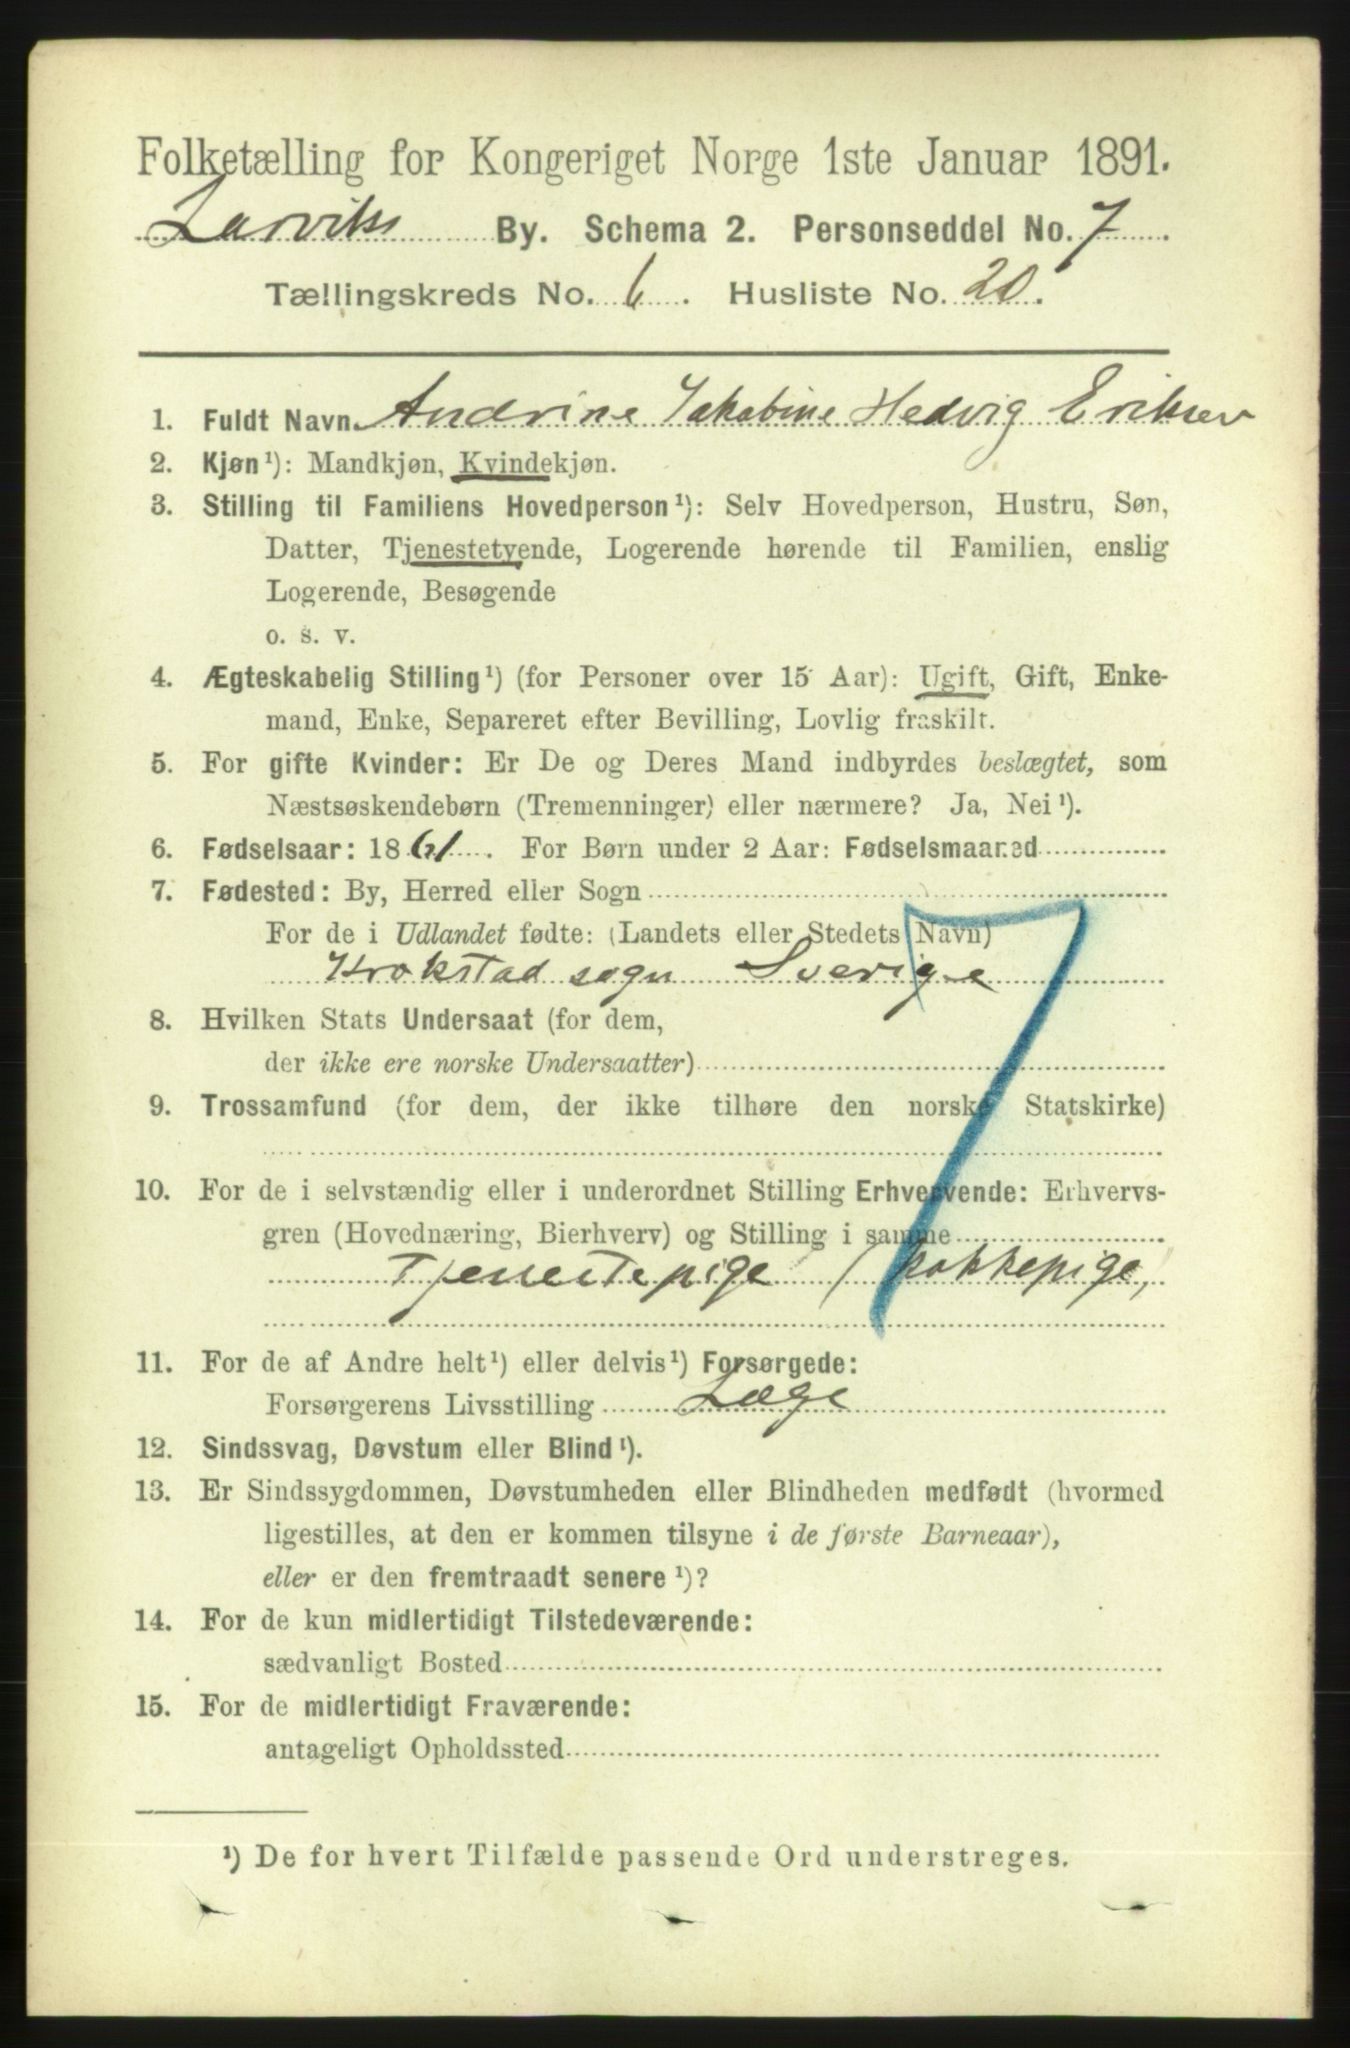 Folketælling for Kongeriget Norge 1ste Januar 1891.
Larviks By. Schema 2. Personseddel No. 7
Tællingskreds No. 6. Husliste No. 20.
1. Fuldt Navn. Andrine Jakobine Hedvig Eriksen
2. Kjøn¹): Mandkjøn, Kvindekjøn.
3. Stilling til Familiens Hovedperson¹): Selv Hovedperson, Hustru, Søn,
Datter, Tjenestetyende, Logerende hørende til Familien, enslig
Logerende, Besøgende
o. s. v.
4. Ægteskabelig Stilling¹) (for Personer over 15 Aar): Ugift, Gift, Enke-
mand, Enke, Separeret efter Bevilling, Lovlig fraskilt.
5. For gifte Kvinder: Er De og Deres Mand indbyrdes beslægtet, som
Næstsøskendebørn (Tremenninger) eller nærmere? Ja, Nei¹).
6. Fødselsaar: 1861. For Børn under 2 Aar: Fødselsmaaned
7. Fødested: By, Herred eller Sogn
For de i Udlandet fødte: (Landets eller Stedets Navn)
Krokstad sogn Sverige
8. Hvilken Stats Undersaat (for dem,
der ikke ere norske Undersaatter)
9. Trossamfund (for dem, der ikke tilhøre den norske Statskirke)
10. For de i selvstændig eller i underordnet Stilling Erhvervende: Erhvervs-
gren (Hovednæring, Bierhverv) og Stilling i samme
Tjenestepige / kokkepige,
7
11. For de af Andre helt¹) eller delvis¹) Forsørgede:
Forsørgerens Livsstilling Læge
12. Sindssvag, Døvstum eller Blind¹).
13. Er Sindssygdommen, Døvstumheden eller Blindheden medfødt (hvormed
ligestilles, at den er kommen tilsyne i de første Barneaar),
eller er den fremtraadt senere¹)?
14. For de kun midlertidigt Tilstedeværende:
sædvanligt Bosted
15. For de midlertidigt Fraværende:
antageligt Opholdssted
¹) De for hvert Tilfælde passende Ord understreges.